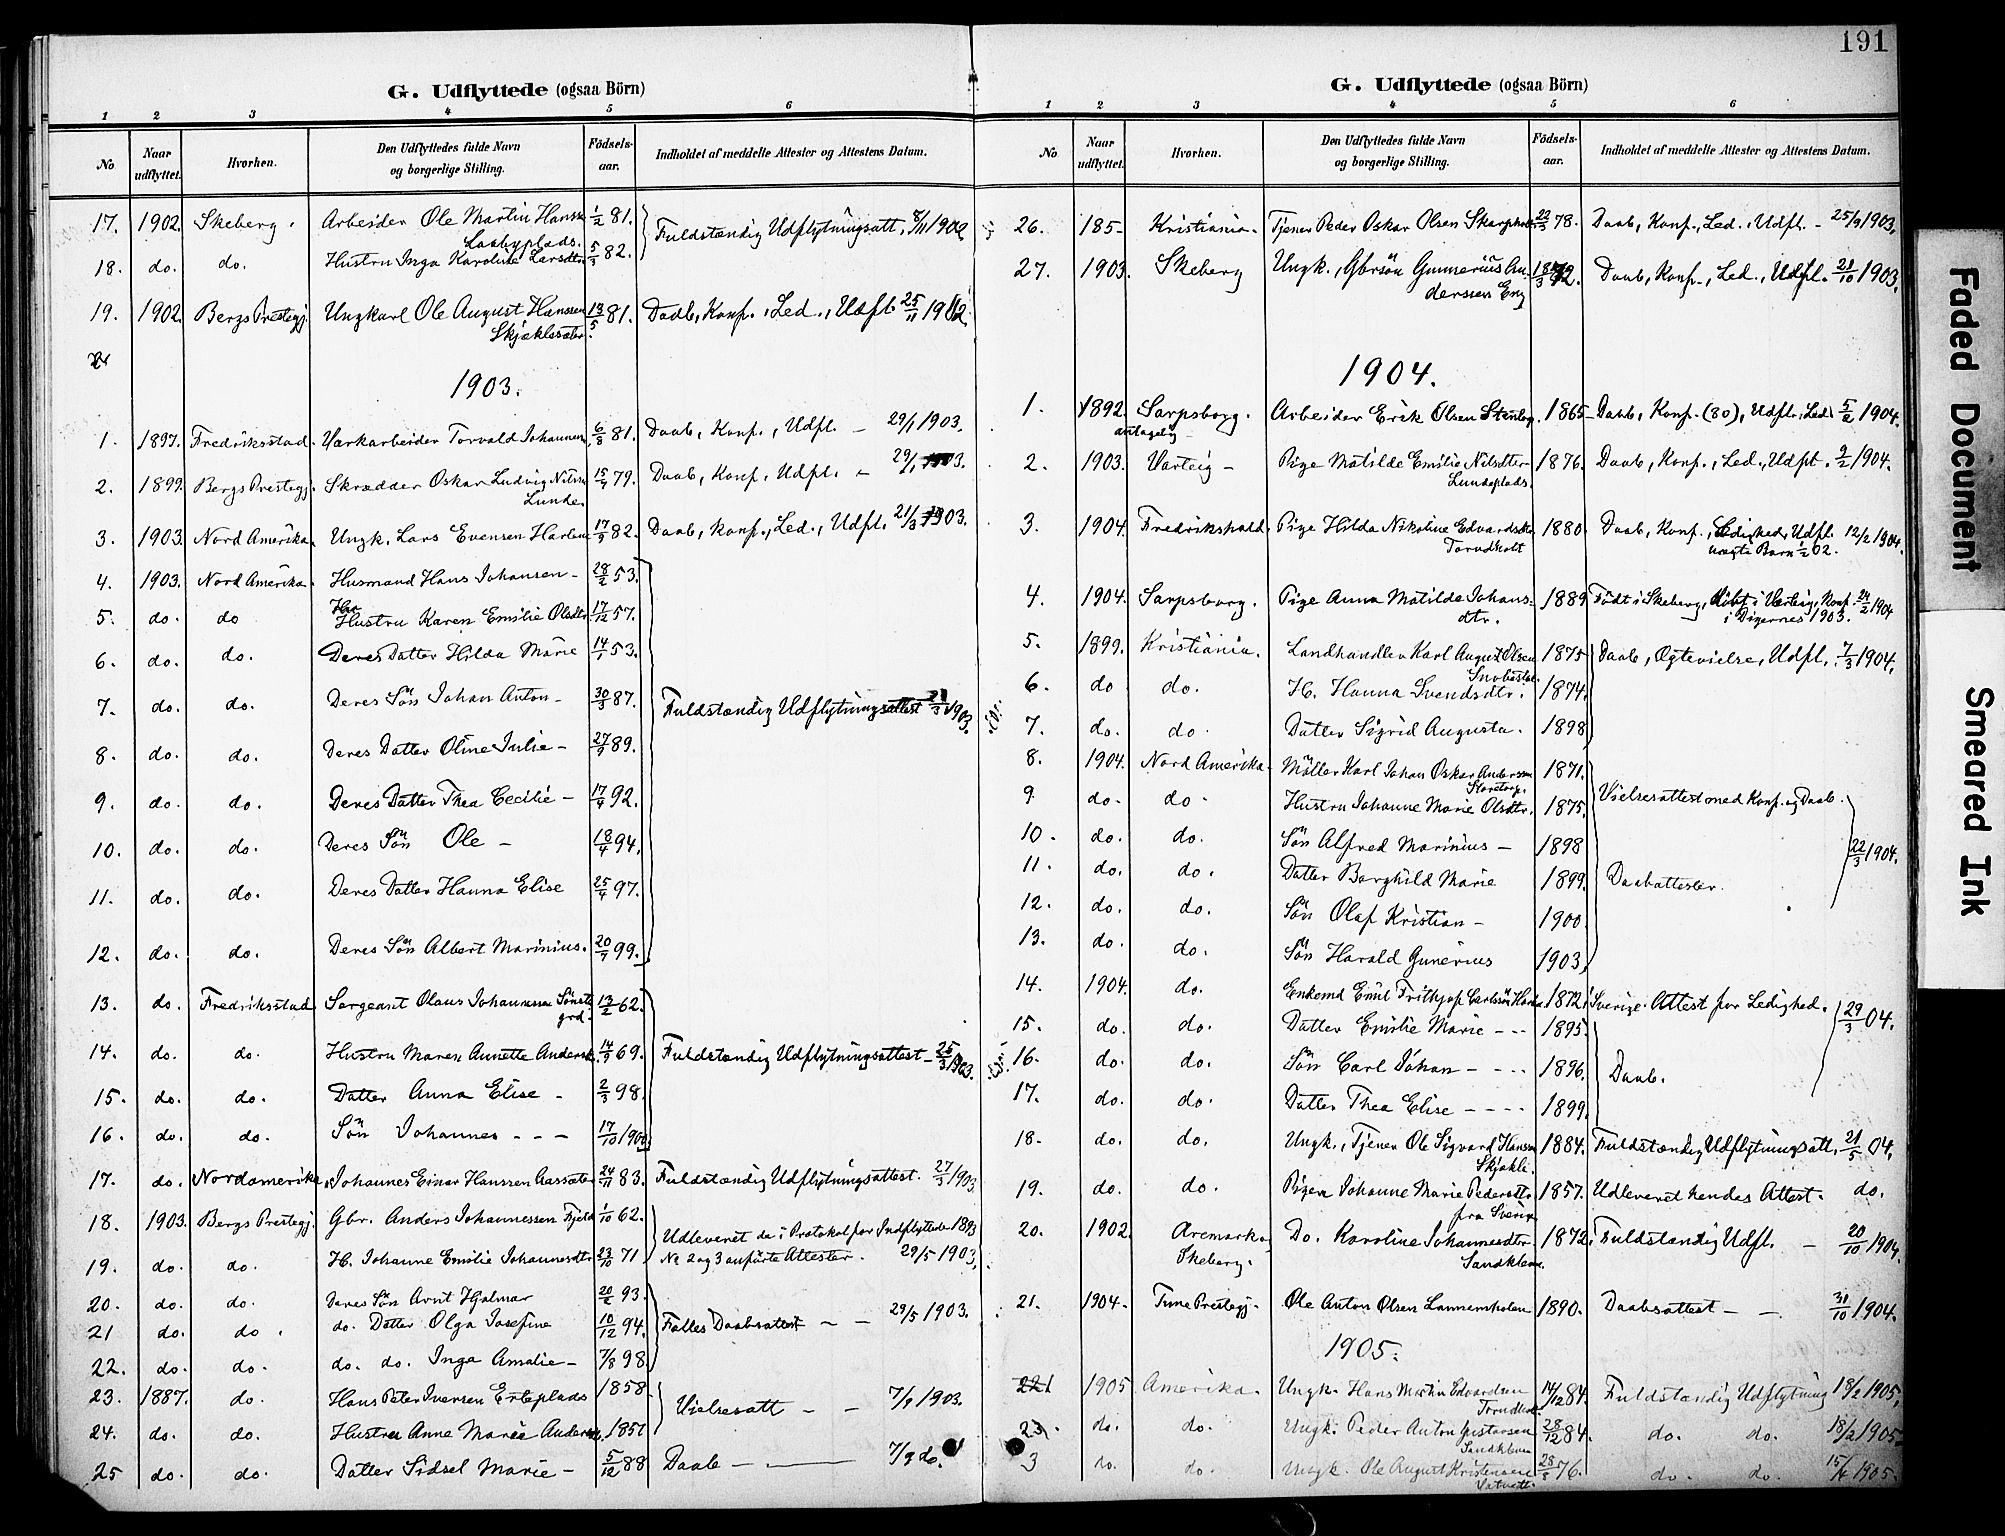 191
G. Udflyttede (ogsaa Börn)
1 2 3 4 5 6
No Naar udflyttet. Hvorhen. Den Udflyttedes fulde Navn og borgerlige Stilling. Födsels-aar. Indholdet af meddelte Attester og Attestens Datum.
17. 1902. Skeberg. Arbeider Ole Martin Hanssen 1/2 81. Fuldstændig Udflytningsatt. 8/11 1902.
Laabyplads.
18. do. do. Hustru Inga Karoline Larsdtr 5/3 82.
19. 1902 Bergs Prestegj. Ungkarl Ole August Hanssen 13/5 81. Daab, Konf., Led., Udfl. 25/11 1902.
Skjæklesæter
1903.
1. 1897. Fredriksstad. Værkarbeider Torvald Johannesen 6/3 81. Daab, Konf., Udfl. — 29/1 1903.
2. 1899. Bergs Prestegj. Skrædder Oskar Ludvig Nilsen 15/7 79. Daab, Konf. Udfl. — 29/1 1903.
Lunde.
3. 1903. Nord Amerika. Ungk. Lars Evensen 17/9 82. Daab, Konf., Led., Udfl. 21/3 1903.
4. 1903. Nord Amerika. Husmand Hans Johansen - 28/2 53.
5. do. do Hustru Karen Emilie Olsdtr. 17/12 57.
6. do. do. Deres Datter Hilda Marie 14/1 53.
7. do. do. Deres Sön Johan Anton - 30/3 87. Fuldstændig Udflytningsattest 21/3 1903.
8. do. do. Deres Datter Oline Julie - 27/9 89.
9. do. do. Deres Datter Thea Cecilie - 17/9 92.
10. do. do. Deres Sön Ole - 18/4 94.
11. do. do. Deres Datter Hanna Elise 25/4 97.
12. do. do. Deres Sön Albert Marinius. 20/7 99.
13. do. Fredriksstad Sergeant Olaus Johannessen 13/2 62.
grd.
14. do. do. Hustru Maren Annette Andersd. 14/9 69. Fuldstændig Udflytningsattest - 25/3 1903.
15. do. do. Datter Anna Elise - 2/3 98.
16. do. do. Sön Johannes - - - 17/10 1900
17. do. Nordamerika Johannes Einar Hanssen Aassæter 24/11 83. Fuldstændig Udflytningsattest. 27/3 1903
18. 1903. Bergs Prestegj. Gbr. Anders Johannessen Fjeld 1/10 62. Udleveret de i Protokol for Indflyttede 1893
19. do. do. H. Johanne Emilie Johannesdtr 23/10 71 No 2 og 3 anförte Attester. 29/5 1903.
20. do. do. Deres Sön Arnt Hjalmar 20/2 93.
21 do. do. do. Datter Olga Josefine 10/12 94. Fælles Daabsattest - - 29/5 1903.
22. do. do. do. do. Inga Amalie - 7/8 98.
23. 1887. do. Hans Peter Iversen Erteplads 1858. Vielsesatt - - 7/9 1903.
24. do. do. Hustru Anne Marie Anders. 1857
25 do. do. Datter Sidsel Marie - 5/12 88 Daab — 7/9 do.
G. Udflyttede (ogsaa Börn)
1 2 3 4 5 6
No Naar udflyttet. Hvorhen. Den Udflyttedes fulde Navn og borgerlige Stilling. Födsels-aar. Indholdet af meddelte Attester og Attestens Datum.
26. 185- Kristiania. Tjener Peder Oskar Olsen 22/3 78. Daab, Konf., Led., Udfl. - 25/9 1903.
27. 1903. Skeberg Ungk., Gbrsön Gunnerius An- 72. Daab, Konf., Led., Udfl. 21/10 1903.
derssen Eng
1904.
1. 1892. Sarpsborg. Arbeider Erik Olsen 1865 - Daab, Konf. (80), Udfl., Led. 5/2 1904.
antagelig
2. 1903. Varteig - Pige Matilde Emilie Nilsdtr 1876. Daab, Konf., Led., Udfl. 9/2 1904.
Lundeplads.
3. 1904. Fredrikshald. Pige Hilda Nikoline Edvardsdtr 1880. Daab, Konf., Ledighed, Udfl. 12/2 1904.
Torndholt uægte Barn 1/2 02.
4. 1904. Sarpsborg. Pige Anna Matilde Johans- 1889 Födt i Skeberg, döbt i Varteig, Konf. 24/2 1904
dtr. i Digernes 1903.
5. 1899. Kristiania. Landhandler Karl August Olsen 1875 Daab, Ægtevielse, Udfl. 7/3 1904.
6. do do. H. Hanna Svendsdtr. 1874.
7. do. do. Datter Sigrid Augusta. 1898
8. 1904. Nord Amerika. Möller Karl Johan Oskar Andersen 1871.
9 do. do. Hustru Johanne Marie Olsdtr. 1875. Vielsesattest med Konf. og Daab.
10. do. do. Sön Alfred Marinius - 1898 22/3 1904.
11. do. do. Datter Borghild Marie 1899. Daabattester.
12. do. do. Sön Olaf Kristian - 1900
13. do. do. Sön Harald Gunerius 1903
14. 1904. do. Enkemd Emil Frithjof Carlssön 1872. Sverige. Attest for Ledighed. 29/3 04.
15. do. do. Datter Emilie Marie - - 1895
16. do. do. Sön Carl Johan - - - 1896. Daab.
17. do. do. Datter Thea Elise - - - - 1899.
18. do. do. Ungk., Tjener Ole Sigvard Hanssen 1884. Fuldstændig Udflytningsatt. 21/5 04.
Skjækle.
19. do. do. Pigen Johanne Marie Pedersdtr. 1857. Udleveret hendes Attest. do.
fra Sverige
20. 1902. Aremark Do. Karoline Johannesdtr. 1872. Fuldstændig Udfl. - 20/10 1904.
Skeberg. Sandklev.
21. 1904. Tune Prestegj. Ole Anton Olsen 1890. Daabsattest - - 31/10 1904.
1905.
1 1905 Amerika. Ungk. Hans Martin Edvardsen 14/12 84. Fuldstændig Udflytning 18/2 1905.
Torndholt
23. do. do. Ungk. Peder Anton Gustavsen 28/12 84. do. do. 18/2 1905.
Sandkleven
3 do. do. Ungk. Ole August Kristensen 28/8 76. do. do. 15/4 1905.
Faded Document
Smeared Ink